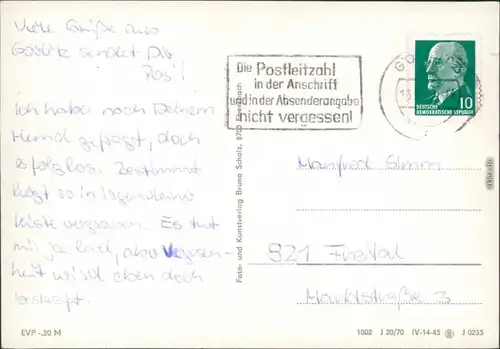 Viele Grüße aus
Görlitz sendet Dir
Ich habe nach Deinem
Hemd gefragt, doch
erfolglos. Bestimmt
liegt es in irgendeiner
Kiste vergraben. Es tut
mir ja leid, aber Vergessen-
heit wird eben doch
bestraft.
EVP -,20 M
Foto- und Kunstverlag Bruno Scholz, 8705
Die Postleitzahl
in der Anschrift
und in der Absenderangabe
nicht vergessen!
DEUTSCHE
DEMOKRATISCHE REPUBLIK
10
Manfred
821 Freital
Marktstraße 3
1002 J 20/70 IV-14-45 J 0235